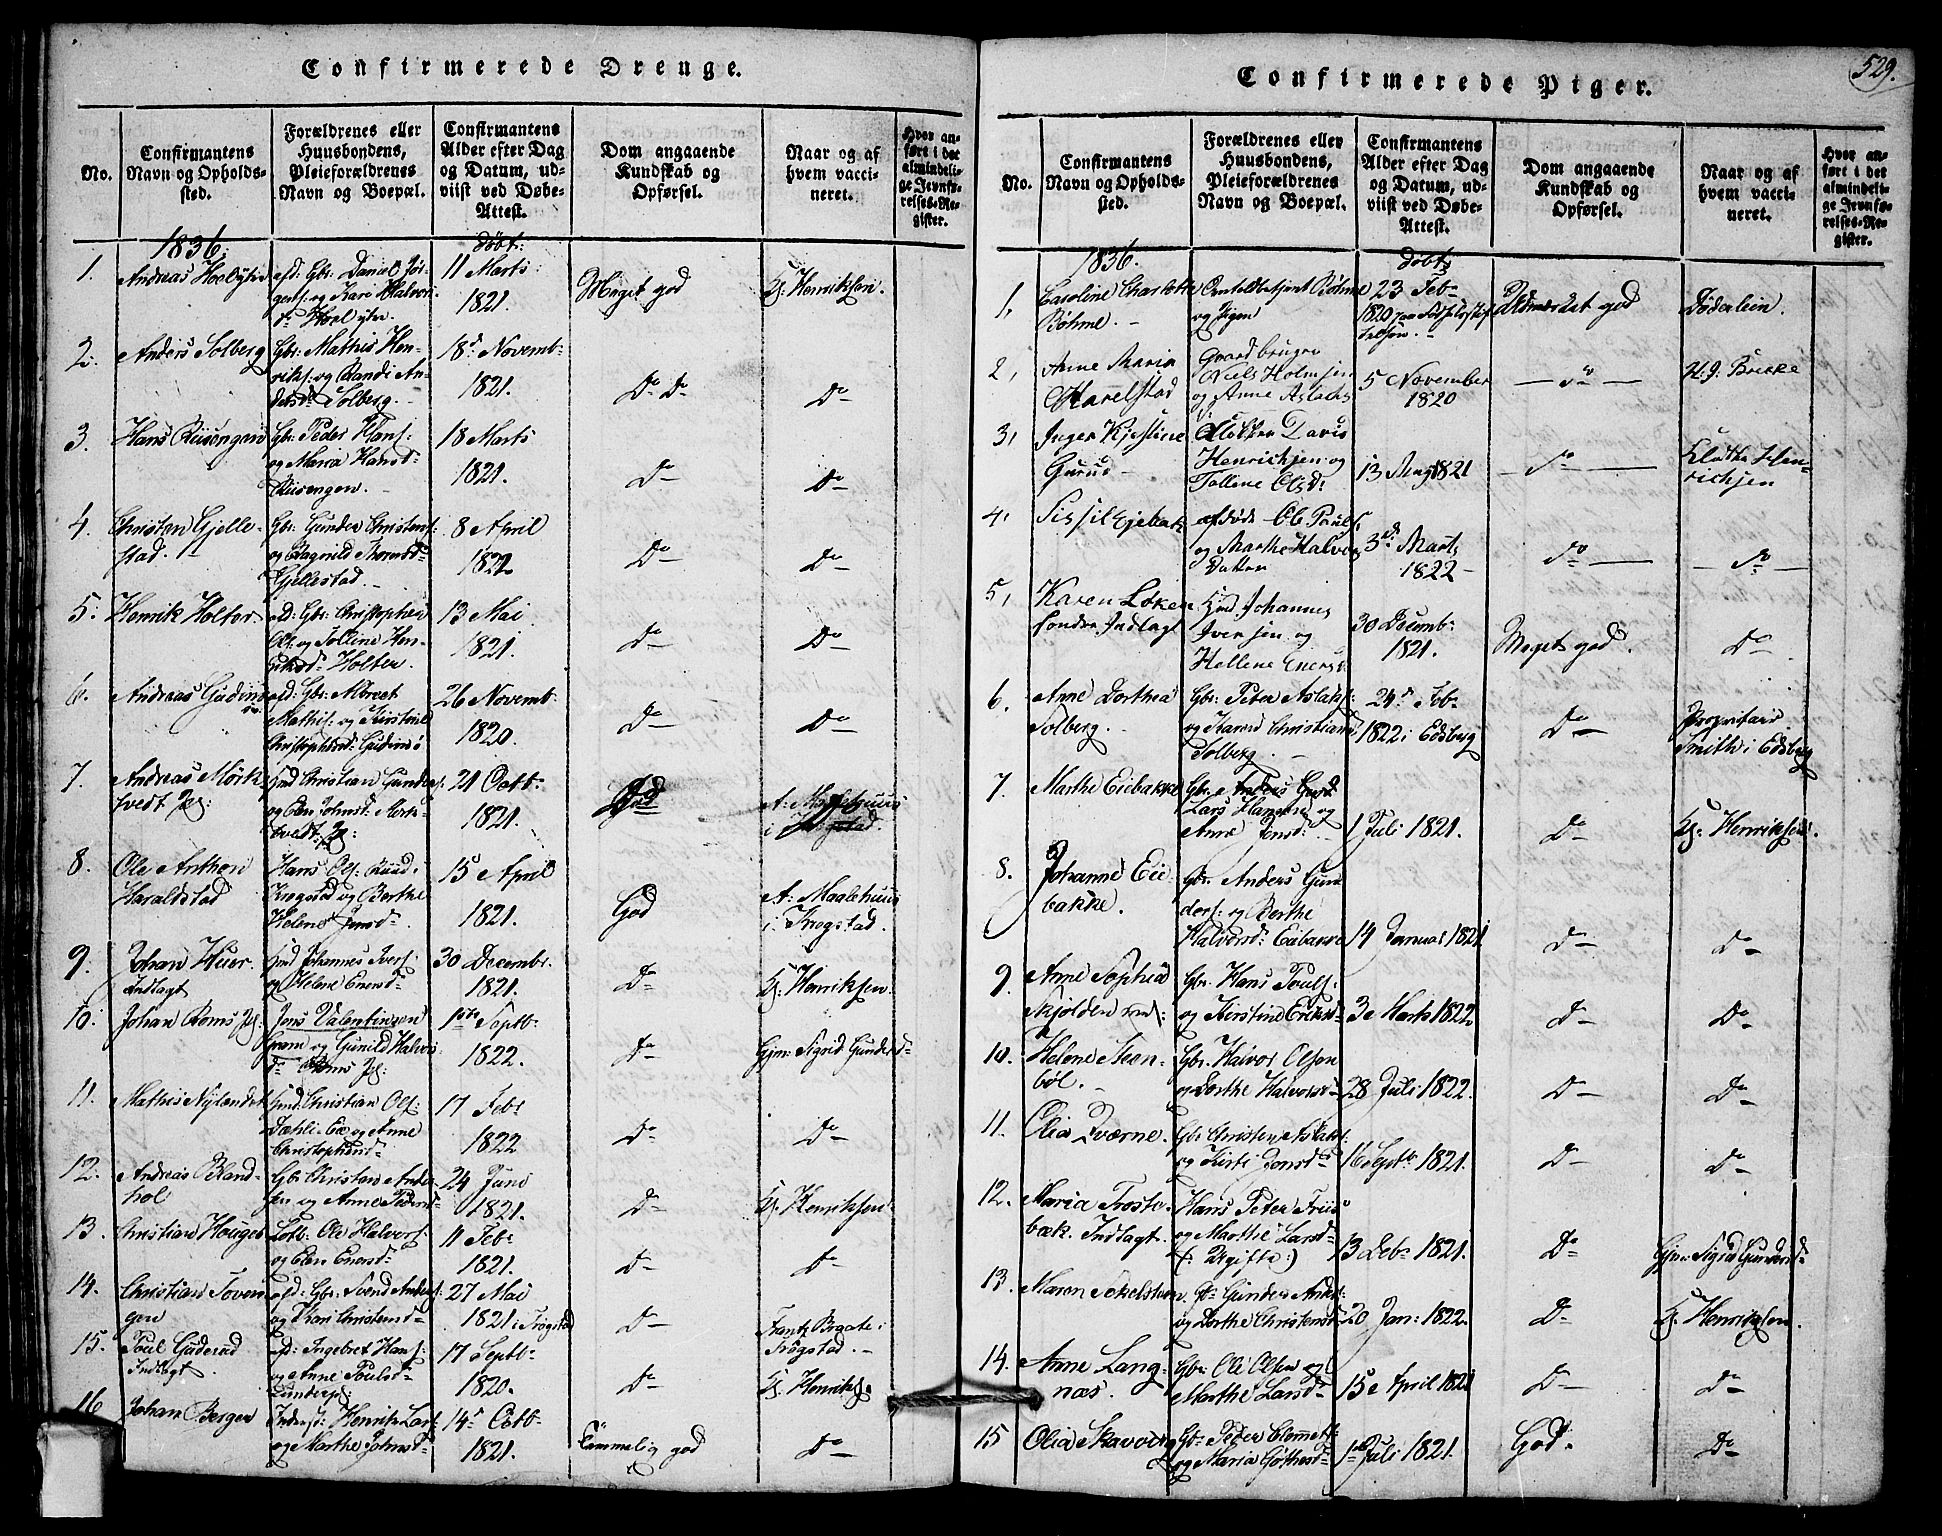 Confirmerede Drenge.
No.
Confirmantens
Navn og Opholds-
sted.
Forældrenes eller
Huusbondens,
Pleieforældrenes
Navn og Boepæl.
Confirmantens
Alder efter Dag
og Datum, ud-
viist ved Døbe-
Attest.
Dom angaaende
Kundskab og
Opførsel.
Naar og af
hvem vacci-
neret.
Hvor an-
ført i det
almindeli-
ge Jevnfø-
relses-Re-
gister.
1836.
døbt:
1.
Andreas Hoel ytre
afd: Gbr: Daniel Jør-
gens: og Kari Halvors
Dr Hoel ytre
11 Marts
1821.
Meget god
Kl. Henriksen.
2.
Anders Solberg
Gbr: Mathis Hen-
riks: og Randi An-
dersdr Solberg.
18de Novemb:
1821.
Do Do
Do
3.
Hans Riisengen
Gbr: Peder Hans:
og Maria Hansd:
Riisengen.
18 Marts
1821.
Do
Do
4.
Christian Gjelle-
stad.
Gbr: Gunder Christens:
og Ragnild Thomsd:
Gjellestad.
8 April
1822
Do
Do
5.
Henrik Holter
afd: Gbr: Christopher
Ols: og Solline Hen-
riksd: Holter.
13 Mai
1821.
Do
Do
6.
Andreas Gudim
afd: Gbr: Albreet
Mathis: og Kirstine
Christophersd: Gudim
26 Novemb:
1820.
Do
Do
7.
Andreas Mørk-
tvedt Pl:
Hmd Christian Gunders:
og Elen Johnsd: Mørk-
tvedt Pl:
21 Octb:
1821.
God
A: Maalehuus
i Trøgstad.
8.
Ole Anthon
Haraldstad
Hans Ols: Ruud i
Trøgstad og Berthe
Helene Jensd:
15 April
1821.
God
A: Maalehuus
i Trøgstad.
9.
Johan Huer
Indlagt
Hmd Johannes Ivers:
og Helene Enersd:
30 Decembr.
1821.
Do
Kl. Henriksen.
10.
Johan Roms Pl:
Jens Valentinsen
Gram og Gunild Halvors
Dr Roms Pl:
1ste Septb:
1822.
Do
Gjm: Sigrid Gundersd:
11.
Mathis Nylandet
Hmd: Christian Ols:
Dæhli-Eie og Anne
Christophersd:
17 Feb:
1822
Do
Do
12.
Andreas Bland-
hol
Gbr Christen Ander-
sen og Anne Pedersd:
24 Juni
1821.
Do
Kl. Henriksen
13.
Christian Houger
Ole Halvors:
og Elen Enersd:
11 Feb:
1821.
Do
Do
14.
Christian Toven-
gen
afd: Gbr: Svend Anders:
og Kari Christensd:
27 Mai
1821 i Trøgstad
Do
Frantz Braate i
Trøgstad.
15.
Poul Guderud
Indlagt
afd: Ingebret Hans:
og Anne Poulsd:
Lunder Pl:
17 Septb:
1820.
Do
Kl. Henriks:
16
Johan Berger
Inderst: Henrik Lars:
og Marthe Johnsd:
14de Octb:
1821.
Temmelig god
Do
529.
Confirmerede Piger.
No.
Confirmantens
Navn og Opholds-
sted.
Forældrenes eller
Huusbondens,
Pleieforældrenes
Navn og Boepæl.
Confirmantens
Alder efter Dag
og Datum, ud-
viist ved Døbe-
Attest.
Dom angaaende
Kundskab og
Opførsel.
Naar og af
hvem vacci-
neret.
Hvor an-
ført i det
almindeli-
ge Jevnfø-
relses-Re-
gister.
1836.
døbt
1,
Caroline Charlotte
Bøhme.
Bøhme
og Pigen
23 Feb:
1820
Udmærket god
Døderlein.
2,
Anne Maria
Harelstad
Gaardbruger
Niels Holmsen
og Anne Aslachs
5 November
1820
Do
H.g. Brekke
3,
Inger Kjestine
Gurud
Klokker Davis
Henrichsen og
Tollene Olsd:
13 May 1821
Do
Klokker Hen-
richsen
4,
Sissil Ejebak
afdøde Ole Pauls
og Marthe Halvors
Datter
3de Marts
1822
Do
Do
5,
Karen Løken
søndre Indlagt
Hmd Johannes
Iversen og
Hellene Enersd:
30 Decemb:
1821.
Meget god.
Do
6.
Anne Dorthea
Solberg.
Gbr: Peter Aslaks:
og Karen Christiansd
Solberg
24de Feb:
1822 i Edsberg
Do
Proprietair
Smith i Edsberg
7.
Marthe Eiebakke
Gbr: Anders Gund
Lars Hansen og
Anne Jensd:
1 Juli 1821.
Do
Kl. Henriksen.
8.
Johanne Eie-
bakke.
Gbr. Anders Gun-
ders: og Berthe
Halvorsd: Eiebakke
14 Januar 1821
Do
Do
9.
Anne Sophia
Skjolden
Gbr. Hans Pouls:
og Kirstine Eriksd:
3e Marts 1822
Do
Do
10.
Helene Steen-
bøl.
Gbr: Halvor Olsen
og Dorthe Halvorsd:
28 Juli 1822.
Do
Do
11.
Olia Qværne.
Gbr Christen Aslaks:
og Kirsti Jensd:
16 Septb: 1821.
Do
Do
12.
Maria Froste-
bæk. Indlagt.
Hans Peter Friis
og Marthe Larsd:
(: Ugifte :)
13 Deb: 1821.
Do
Gjm: Sigrid Gundersd:
13.
Maren Sekelsteen
Gbr Gunder Anders:
og Dorthe Christensd:
20 Jan: 1822.
Do
Kl. Henriksen.
14.
Anne Lang-
næs.
Gbr: Ole Olsen og
Marthe Larsd:
15e April 1821
Do
Do
15
Olia Skavvig
Gbr Peder Clemets:
og Maria Gothesd:
1 Juli 1821.
God.
Do